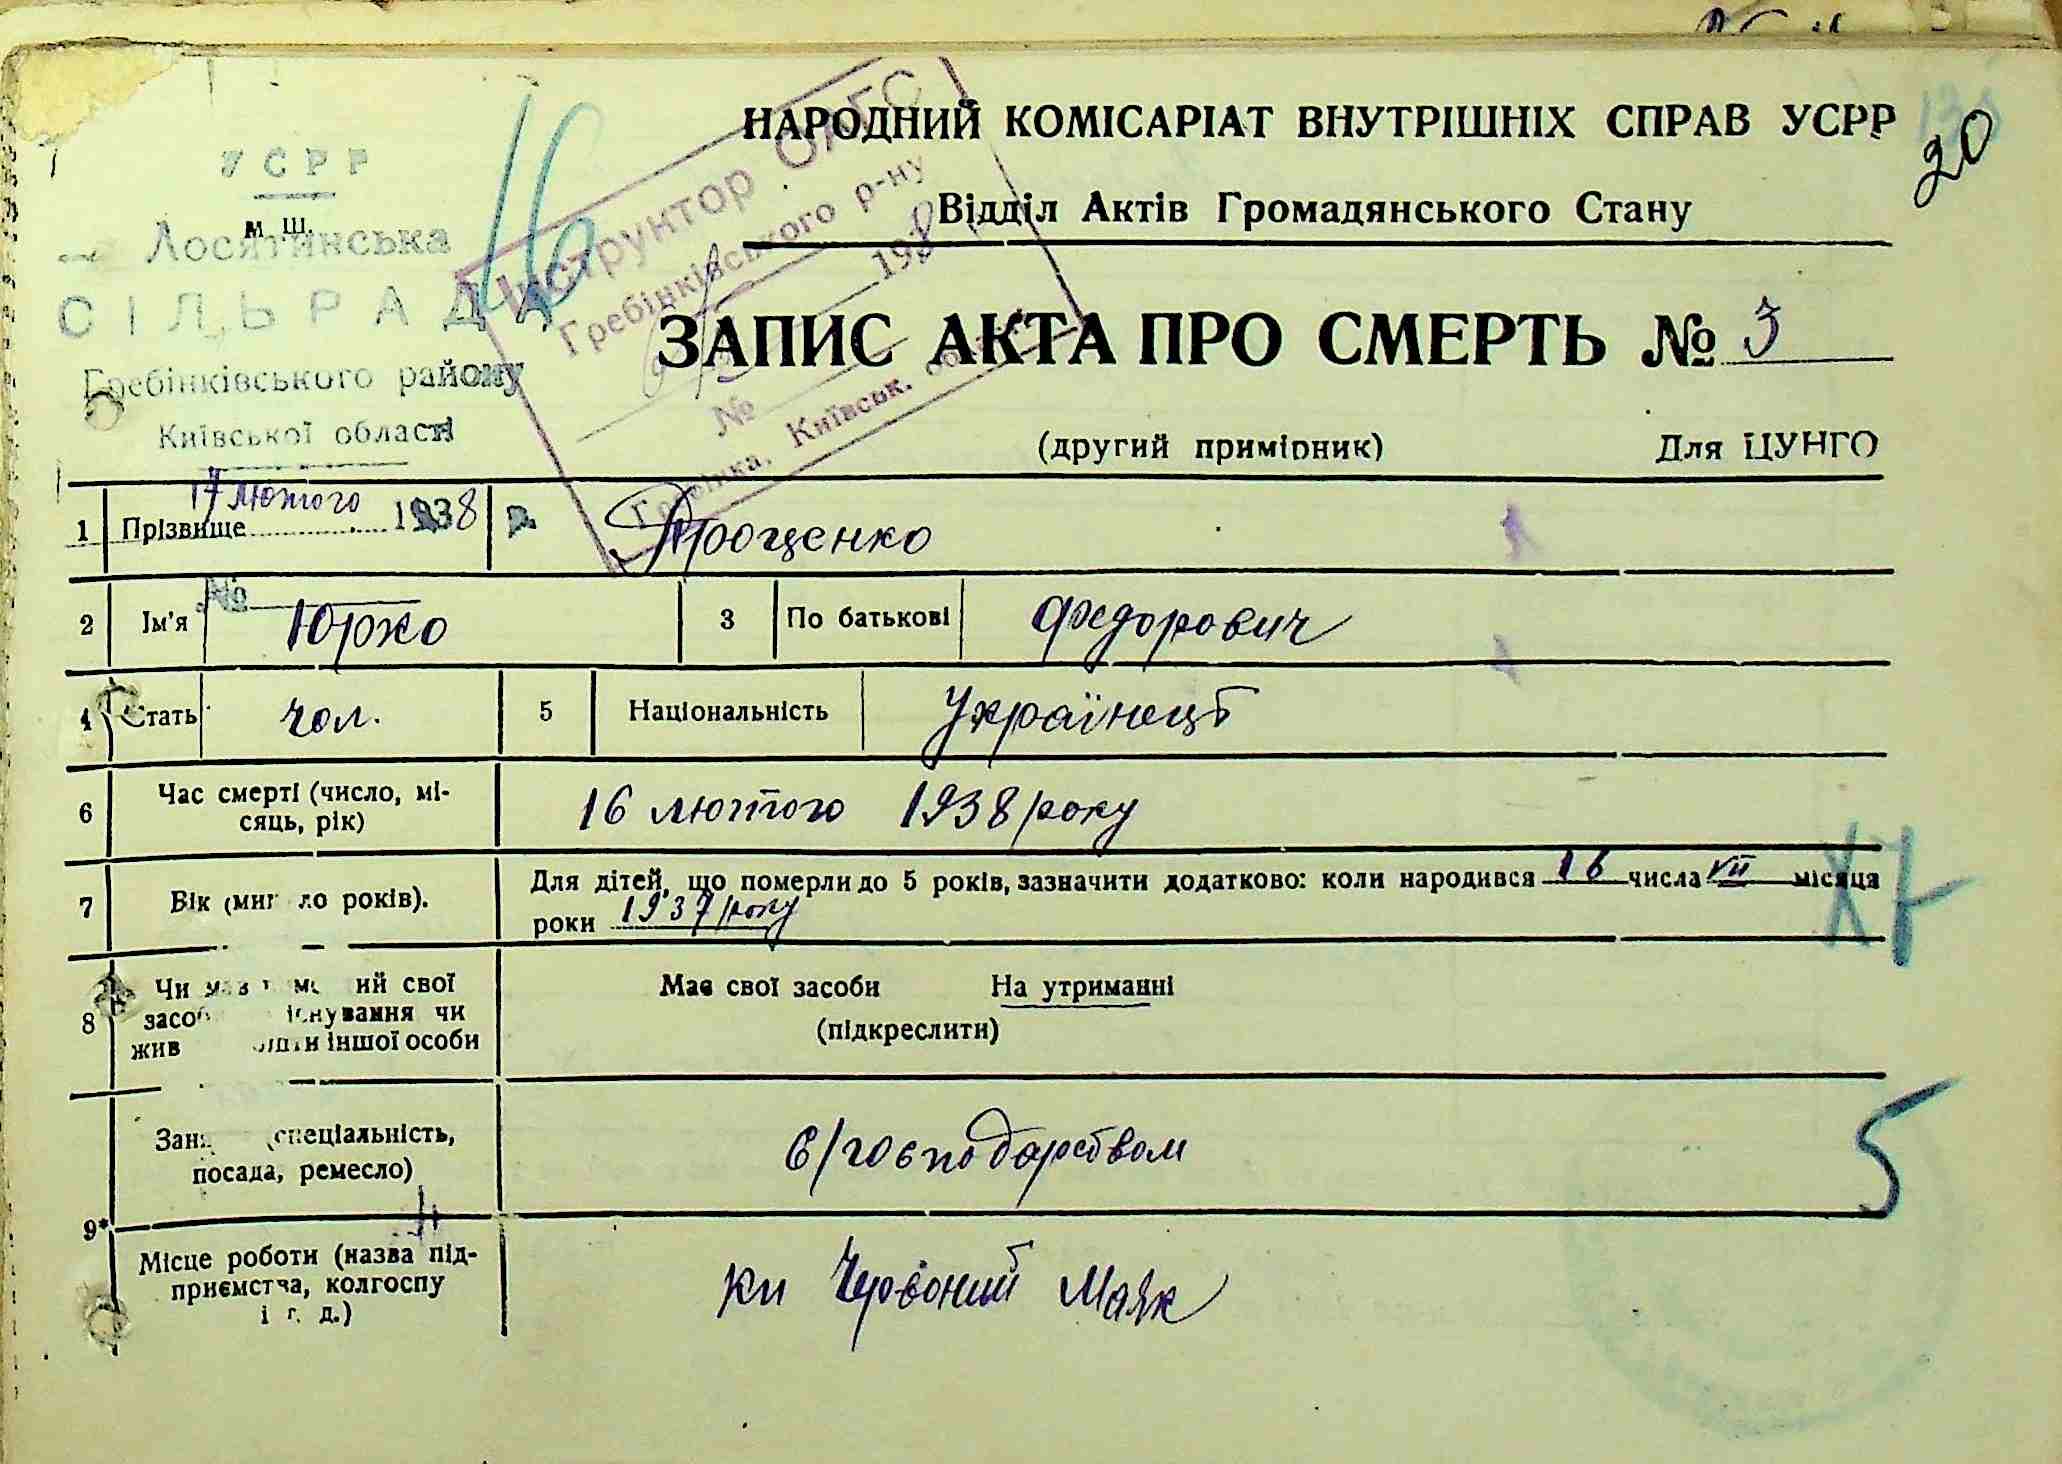 20
НАРОДНИЙ КОМІСАРІАТ ВНУТРІШНІХ СПРАВ УСРР
Відділ Актів Громадянського Стану
УСРР
М Ш.
Лосятинська
СІЛЬРАДА
Гребінківського району
Київської області
17 лютого 1938 р.
№
16
Інструктор ОАГС
Гребінківського р-ну
1938
№
Гребінка, Київськ. обл.
ЗАПИС АКТА ПРО СМЕРТЬ № 3
(другий примірник) Для ЦУНГО
1 Прізвище Троценко
2 Ім'я Юрко 3 По батькові Федорович
4 Стать чол. 5 Національність Українець
6 Час смерті (число, мі-
сяць, рік) 16 лютого 1938 року
7 Вік (минуло років). Для дітей, що померли до 5 років, зазначити додатково: коли народився 16 числа VII місяця
роки 1937 року
8 Чи мав померлий свої
засоби існування чи
жив коштом іншої особи
Має свої засоби На утриманні
(підкреслити)
5
9* Заняття (спеціальність,
посада, ремесло) с/господарством
Місце роботи (назва під-
приємства, колгоспу
і т. д.) кп Червоний Маяк